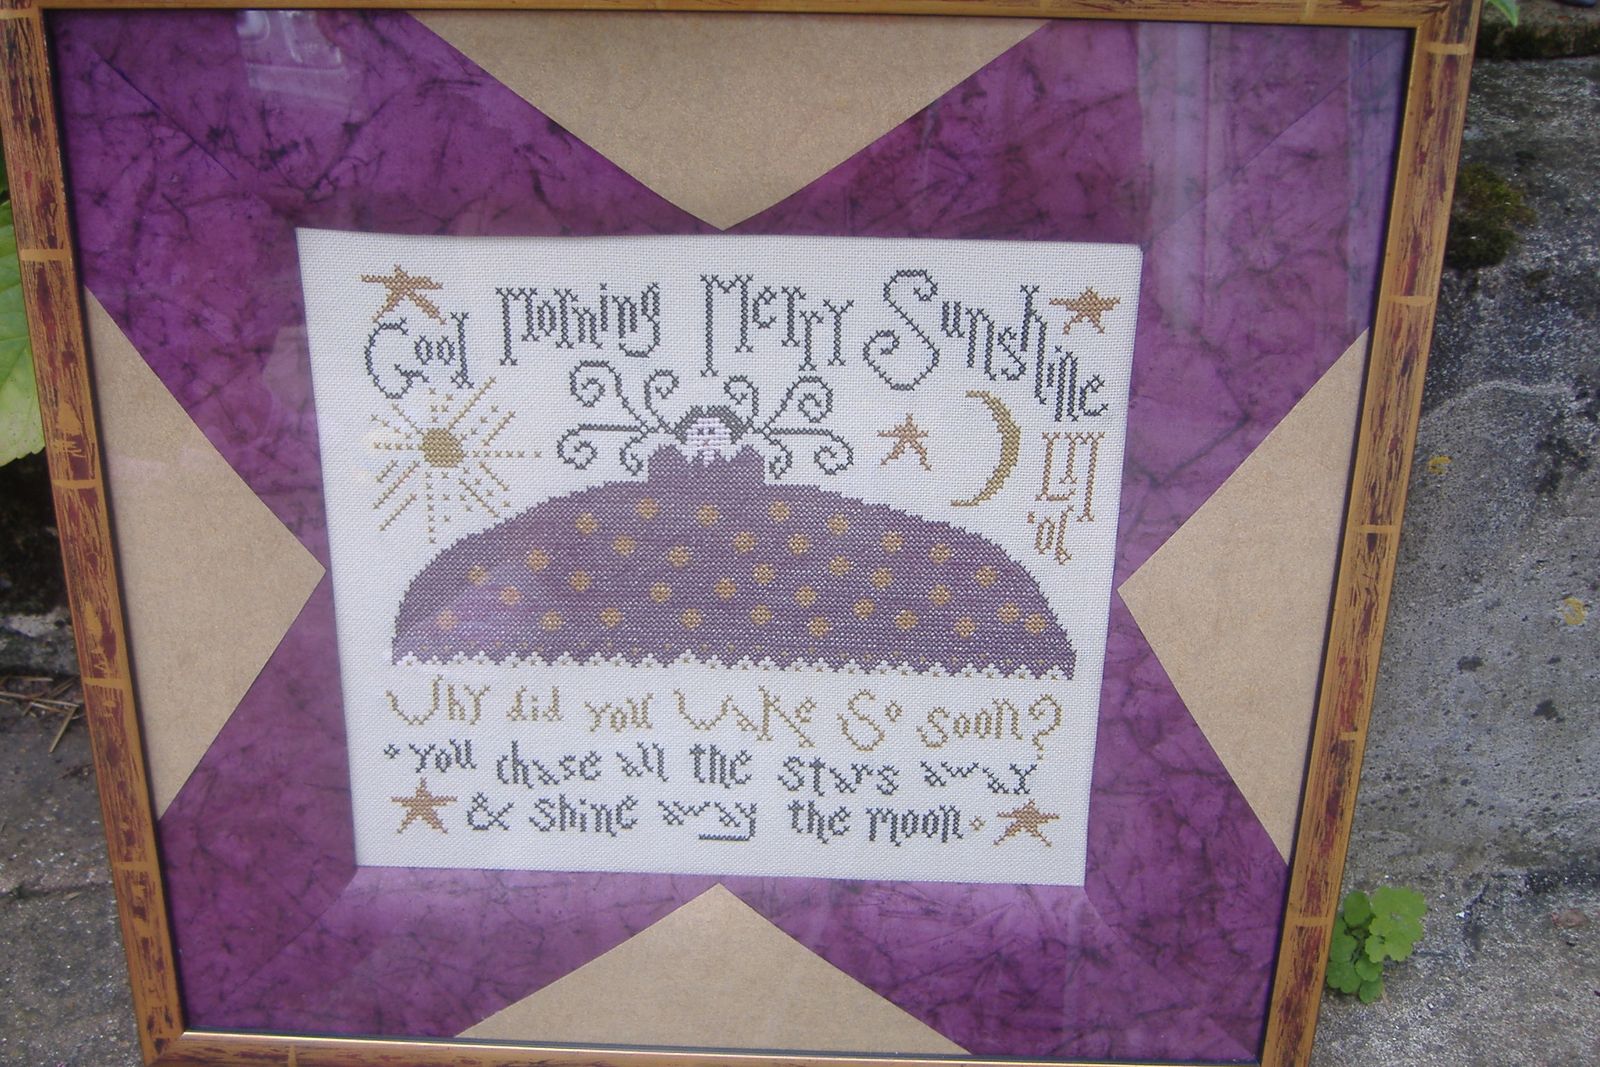 Good Morning Merry Sunshine
'06
Why did you Wake So soon?
you chase all the stars away
& shine away the moon.